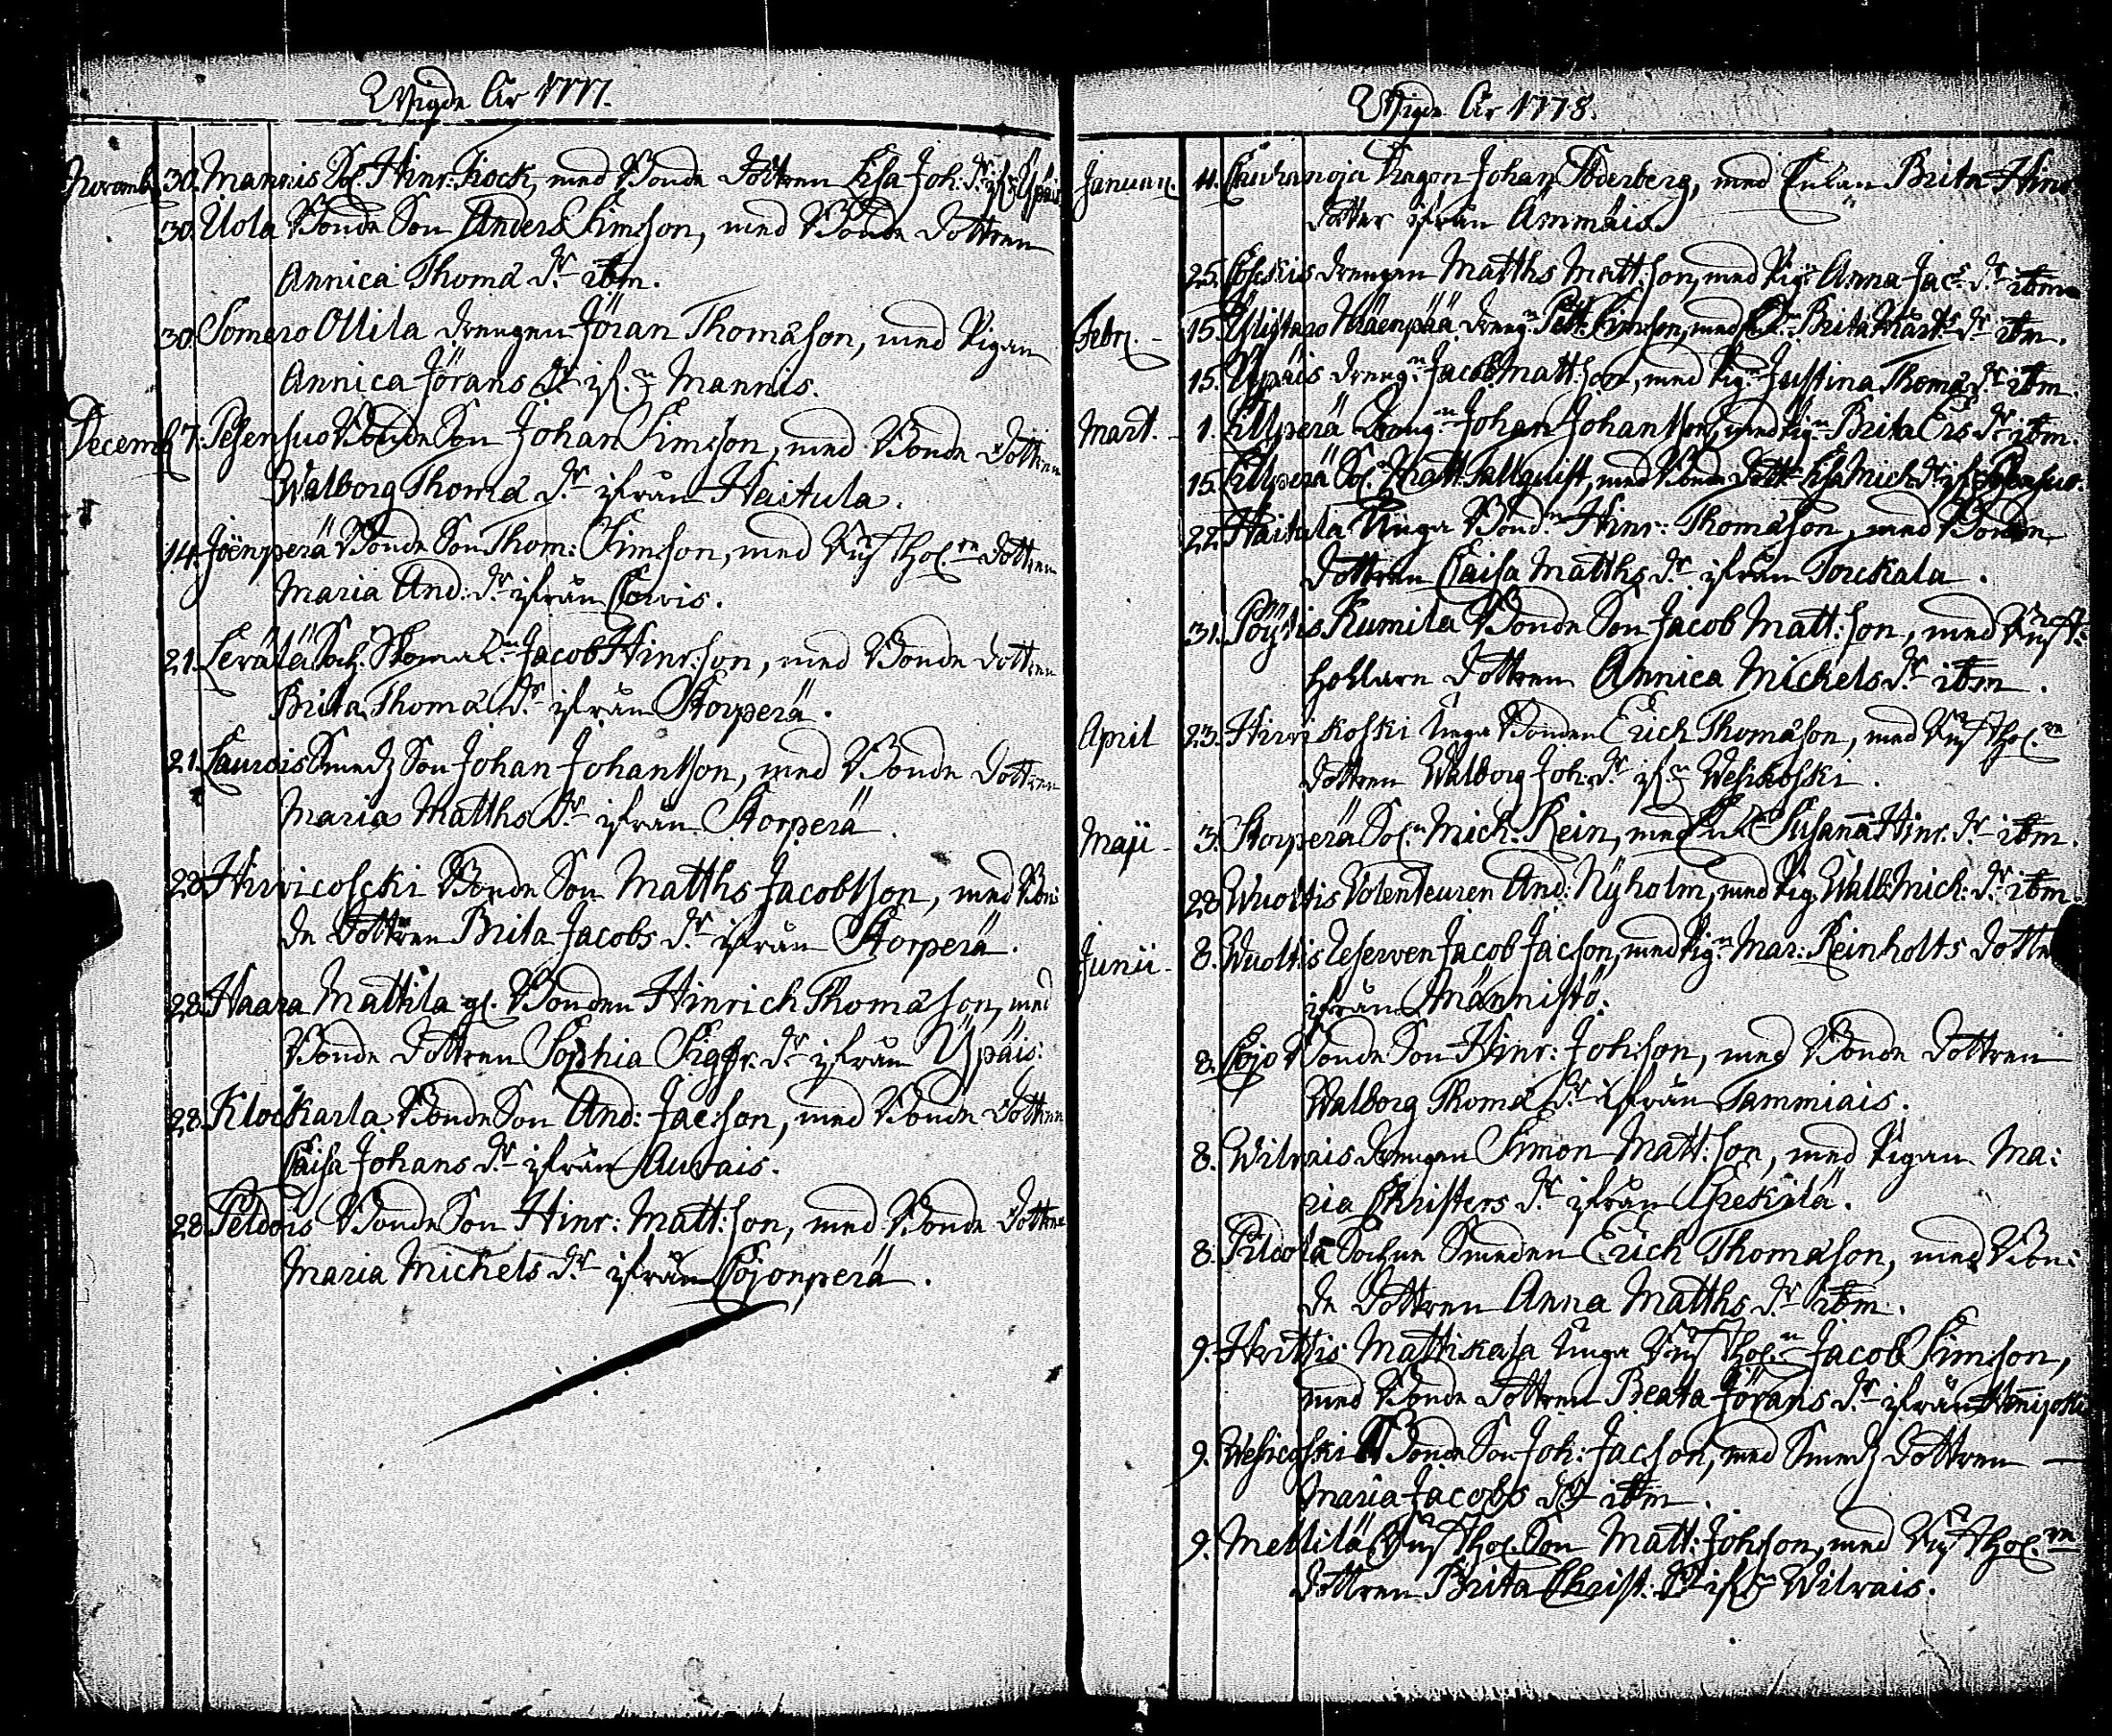 Wigde År 1777.
Novemb. 30. Mannis Sol. Hinr: Kock, med Bonde Dottren Lisa Joh: Dr. ifrån Ypäis
30. Uola Bonde Son Anders Simsson, med Bonde Dottren
Annica Thomæ Dr. ibm.
30. Somero Ollila Drengen Jöran Thomæson, med Pigan
Annica Jörans Dr. ifn. Mannis.
Decemb. 7. Pesensuo Bonde Son Johan Simsson, med Bonde Dottren
Walborg Thomæ Dr. ifrån Haitula.
14. Joenperä Bonde Son Thom: Simsson, med Rusthol.rn Dottren
Maria And: Dr. ifrån Corvis.
21. Lerälä Soch: Skomak.n Jacob Hinr:son, med Bonde Dottren
Brita Thomæ Dr. ifrån Korperä.
21. Laurois Smedz Son Johan Johansson, med Bonde Dottren
Maria Matths Dr. ifrån Korperä.
28. Hirvicoscki Bonde Son Matths Jacobsson, med Bon:
de Dottren Brita Jacobs Dr. ifrån Korperä.
28. Haara Mattila gl. Bonden Hinrich Thomæson, med
Bonde Dottren Sophia Sigfr. Dr. ifrån Ypäis.
28. Klockarla Bonde Son And: Jac:son, med Bonde Dottren
Caisa Johans Dr. ifrån Auvais.
28. Peldois Bonde Son Hinr: Matt:son, med Bonde Dottren
Maria Michels Dr. ifrån Cojonperä.
Wigde År 1778.
Januari. 11. Cauhanoja Johan Söderberg, med Enkan Brita Hinr
dotter ifrån Ammais
25. Coskis Drengen Matths Matt:son, med Pig. Anna Jac: Dr. ibm
Febr. 15. Ylistaro Drengn Petr. Simsson, med Brita Mårt: Dr. ibm.
15. Ypäis Drengn. Jacob Matt:son, med Pign. Justina Thomæ Dr. ibm.
Mart. 1. Cillperä Drengn Johan Johansson, med Pign. Brita Ers Dr. ibm.
15. Cillperä Sol. Matt. Tallquist, med Bonde Dottr. Lisa Mich: Dr. ifn
22. Haitula Unga Bondn. Hinr: Thomæson, med Bonden
Dottren Caisa Matths Dr. ifrån Torckala.
31. Pöytis Kumila Bonde Son Jacob Matt:son, med Rust:
hollare Dottren Annica Michels Dr. ibm.
April 23. Hirvikoski Unga Bonden Erich Thomæson, med Rusthol.rn
Dottren Walborg Joh: Dr. ifn. Wesikoski.
Maji 3. Korperä Sol. Mich: Rein, med Susanna Hinr. Dr. ibm.
28. Wuoltis Volenteuren And: Nyholm, med Pig. Walb. Mich: Dr. ibm.
Junii 8. Wuoltis Reserven Jacob Jacson, med Pign. Mar: Reinholts Dotter
ifrån Männistö.
8. Cojo Bonde Son Hinr: Johsson, med Bonde Dottren
Walborg Thomæ Dr. ifrån Tammiais.
8. Wilvais Drengen Simon Matt:son, med Pigan Ma:
ria Christers Dr. ifrån Crekilä.
8. Pilvola Sochne Smeden Erich Thomæson, med Bon:
de Dottren Anna Matths Dr. ibm.
9. Hvittis Mattikala Unga Rusthol.n Jacob Simsson,
med Bonde Dottren Beata Jörans Dr. ifrån
9. Wesicoski Bonde Son Joh: Jacson, med Smedz Dottren
Maria Jacobs Dr. ibm.
9. Mellilä Rusthol. Son Matt: Johsson, med Rusthol.rn
Dottren Brita Christ: Dr. ifn. Wilvais.